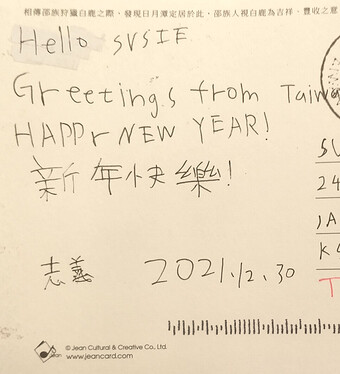 相傳邵族狩獵白鹿之際,發現日月潭定居於此,邵族人視白鹿為吉祥、豐收之意
Hello SUSIE
Greetings from Taiwan
HAPPY NEW YEAR!
新年快樂!
SU
24
JA
K
T
志義 2021.12.30
© Jean Cultural & Creative Co., Ltd.
Jean www.jeancard.com